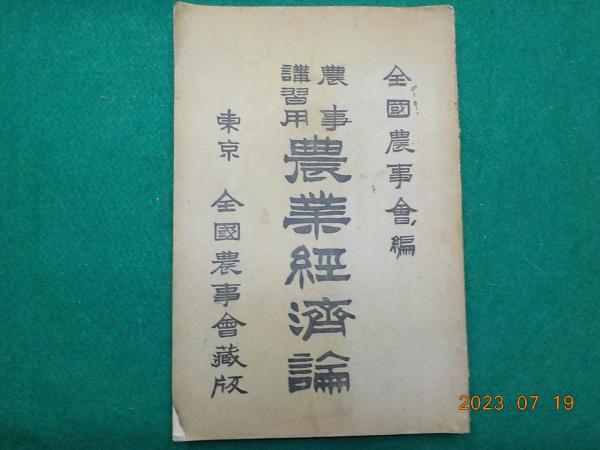 全國農事會編
農事
講習用
農業經濟論
東京 全國農事會藏版
2023.07.19